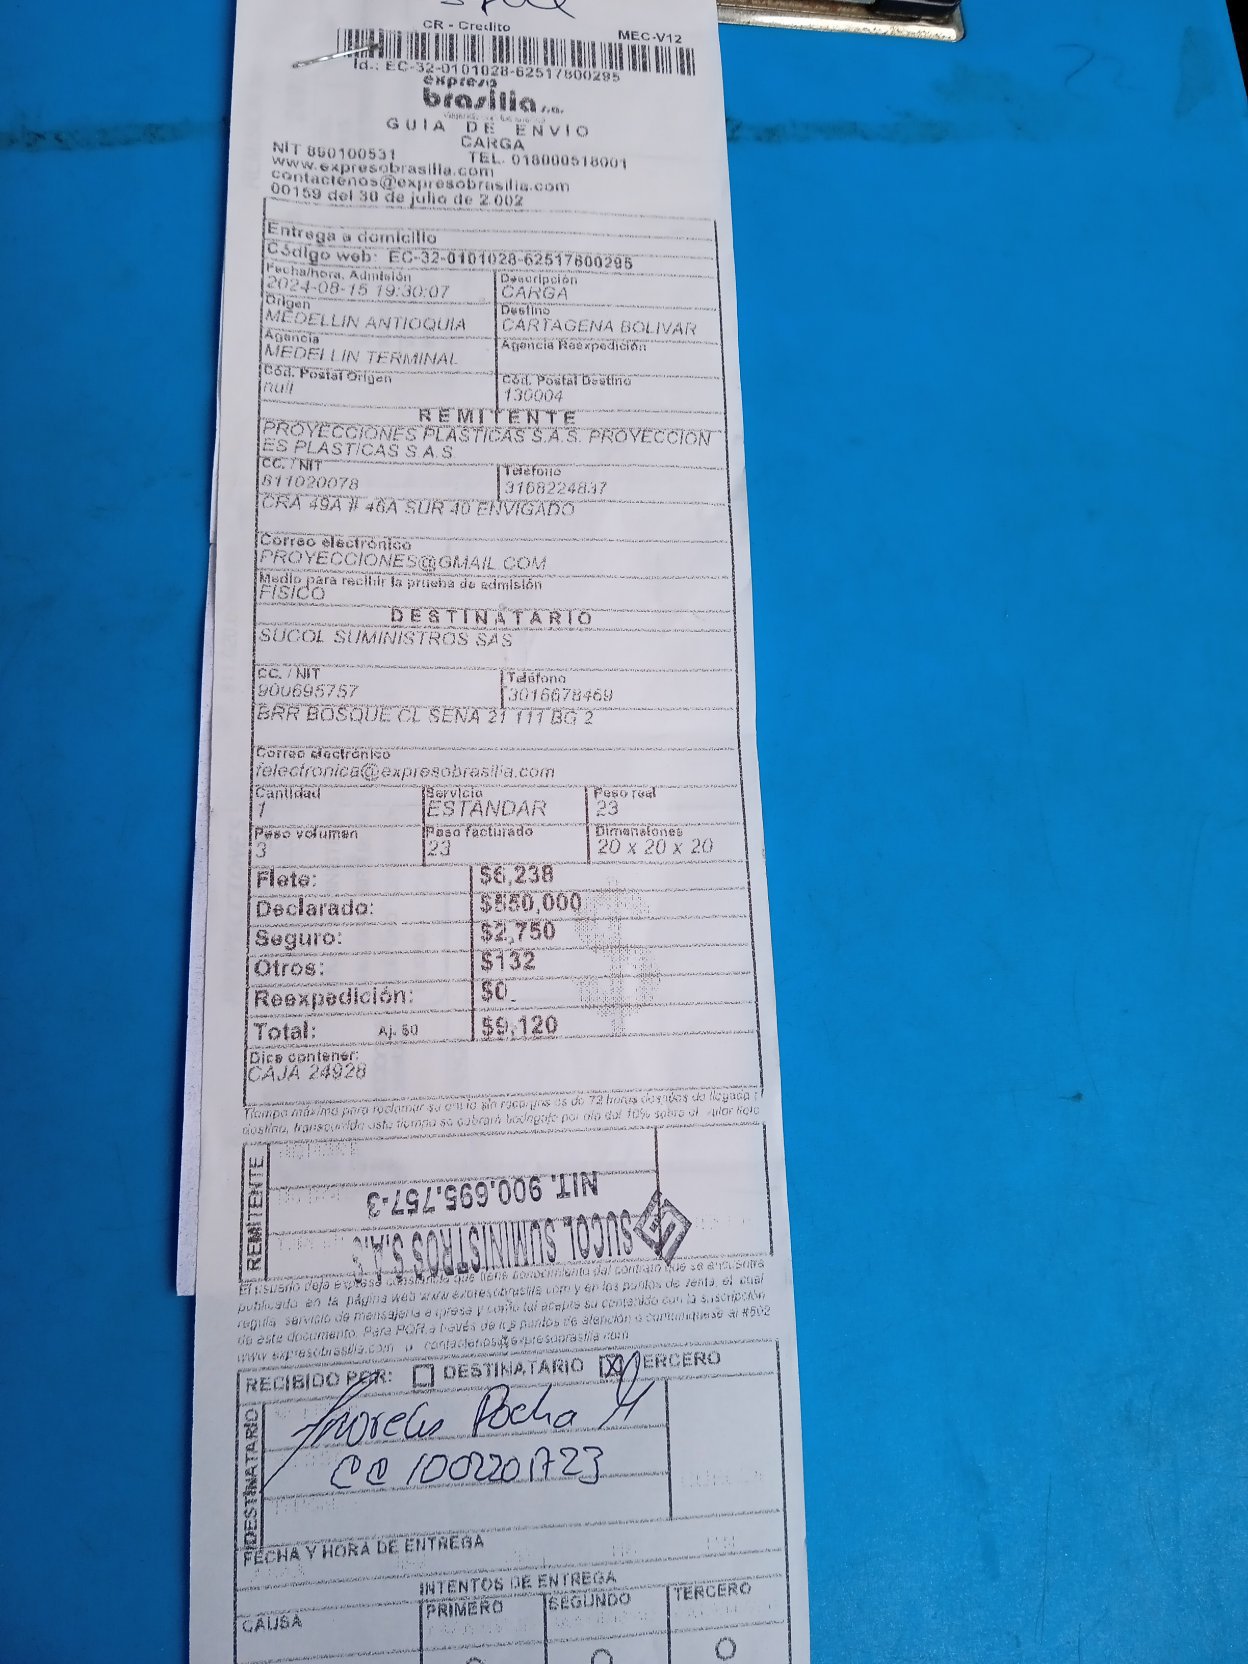 CR - Credito
MEC-V12
Id.: EC-32-0101028-62517800295
expreso
brasilia s.a.
GUIA DE ENVIO
CARGA
NIT 890100531 TEL. 018000518001
www.expresobrasilia.com
contactenos@expresobrasilia.com
00159 del 30 de julio de 2.002
Entrega a domicilio
Código web: EC-32-0101028-62517800295
Fecha/hora. Admisión
2024-08-15 19:30:07
Descripción
CARGA
Origen
MEDELLIN ANTIOQUIA
Destino
CARTAGENA BOLIVAR
Agencia
MEDELLIN TERMINAL
Agencia Reexpedición
Cód. Postal Origen
null
Cód. Postal Destino
130004
REMITENTE
PROYECCIONES PLASTICAS S.A.S. PROYECCION
ES PLASTICAS S.A.S
CC. / NIT
811020078
Teléfono
3168224837
CRA 49A # 46A SUR 40 ENVIGADO
Correo electrónico
PROYECCIONES@GMAIL.COM
Medio para recibir la prueba de admisión
FISICO
DESTINATARIO
SUCOL SUMINISTROS SAS
CC. / NIT
900695757
Teléfono
3016678469
BRR BOSQUE CL SENA 21 111 BG 2
Correo electrónico
felectronica@expresobrasilia.com
Cantidad
1
Servicio
ESTÁNDAR
Peso real
23
Peso volumen
3
Peso facturado
23
Dimensiones
20 x 20 x 20
Flete: $6,238
Declarado: $550,000
Seguro: $2,750
Otros: $132
Reexpedición: $0
Total: Aj. 50 $9,120
Dice contener:
CAJA 24928
Tiempo máximo para reclamar su envío sin recargos es de 72 horas después de llegada
destino, transcurrido este tiempo se cobrará bodegaje por día del 10% sobre el valor flete
REMITENTE
SUCOL SUMINISTROS S.A.S
NIT. 900.695.757-3
El usuario deja expresa constancia que tiene conocimiento del contrato que se encuentra
publicado en la página web www.expresobrasilia.com y en los puntos de venta, el cual
regula servicio de mensajería expresa y como tal acepta su contenido con la suscripción
de este documento. Para PQR a través de los puntos de atención o comuníquese al #502
www.expresobrasilia.com o contactenos@expresobrasilia.com
RECIBIDO POR: DESTINATARIO X TERCERO
DESTINATARIO
Rocha M
CC 1002201723
FECHA Y HORA DE ENTREGA
INTENTOS DE ENTREGA
CAUSA PRIMERO SEGUNDO TERCERO